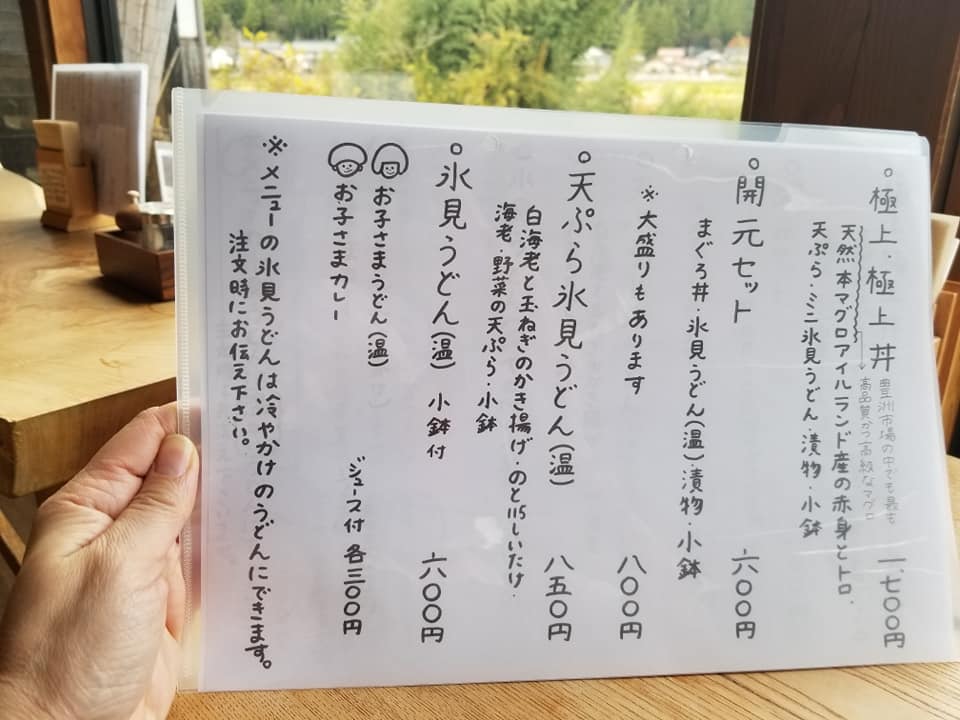 極上・極上丼 一、七〇〇円
豊洲市場の中でも最も
高品質かつ高級なマグロ
天然本マグロアイルランド産の赤身とトロ・
天ぷら・ミニ氷見うどん・漬物・小鉢
開元セット 六〇〇円
まぐろ丼・氷見うどん(温)・漬物・小鉢
※大盛りもあります 八〇〇円
天ぷら氷見うどん(温) 八五〇円
白海老と玉ねぎのかき揚げ・のと115しいたけ・
海老・野菜の天ぷら・小鉢
氷見うどん(温) 小鉢付 六〇〇円
お子さまうどん(温)
お子さまカレー
ジュース付 各三〇〇円
※メニューの氷見うどんは冷やかけのうどんにできます。
注文時にお伝え下さい。